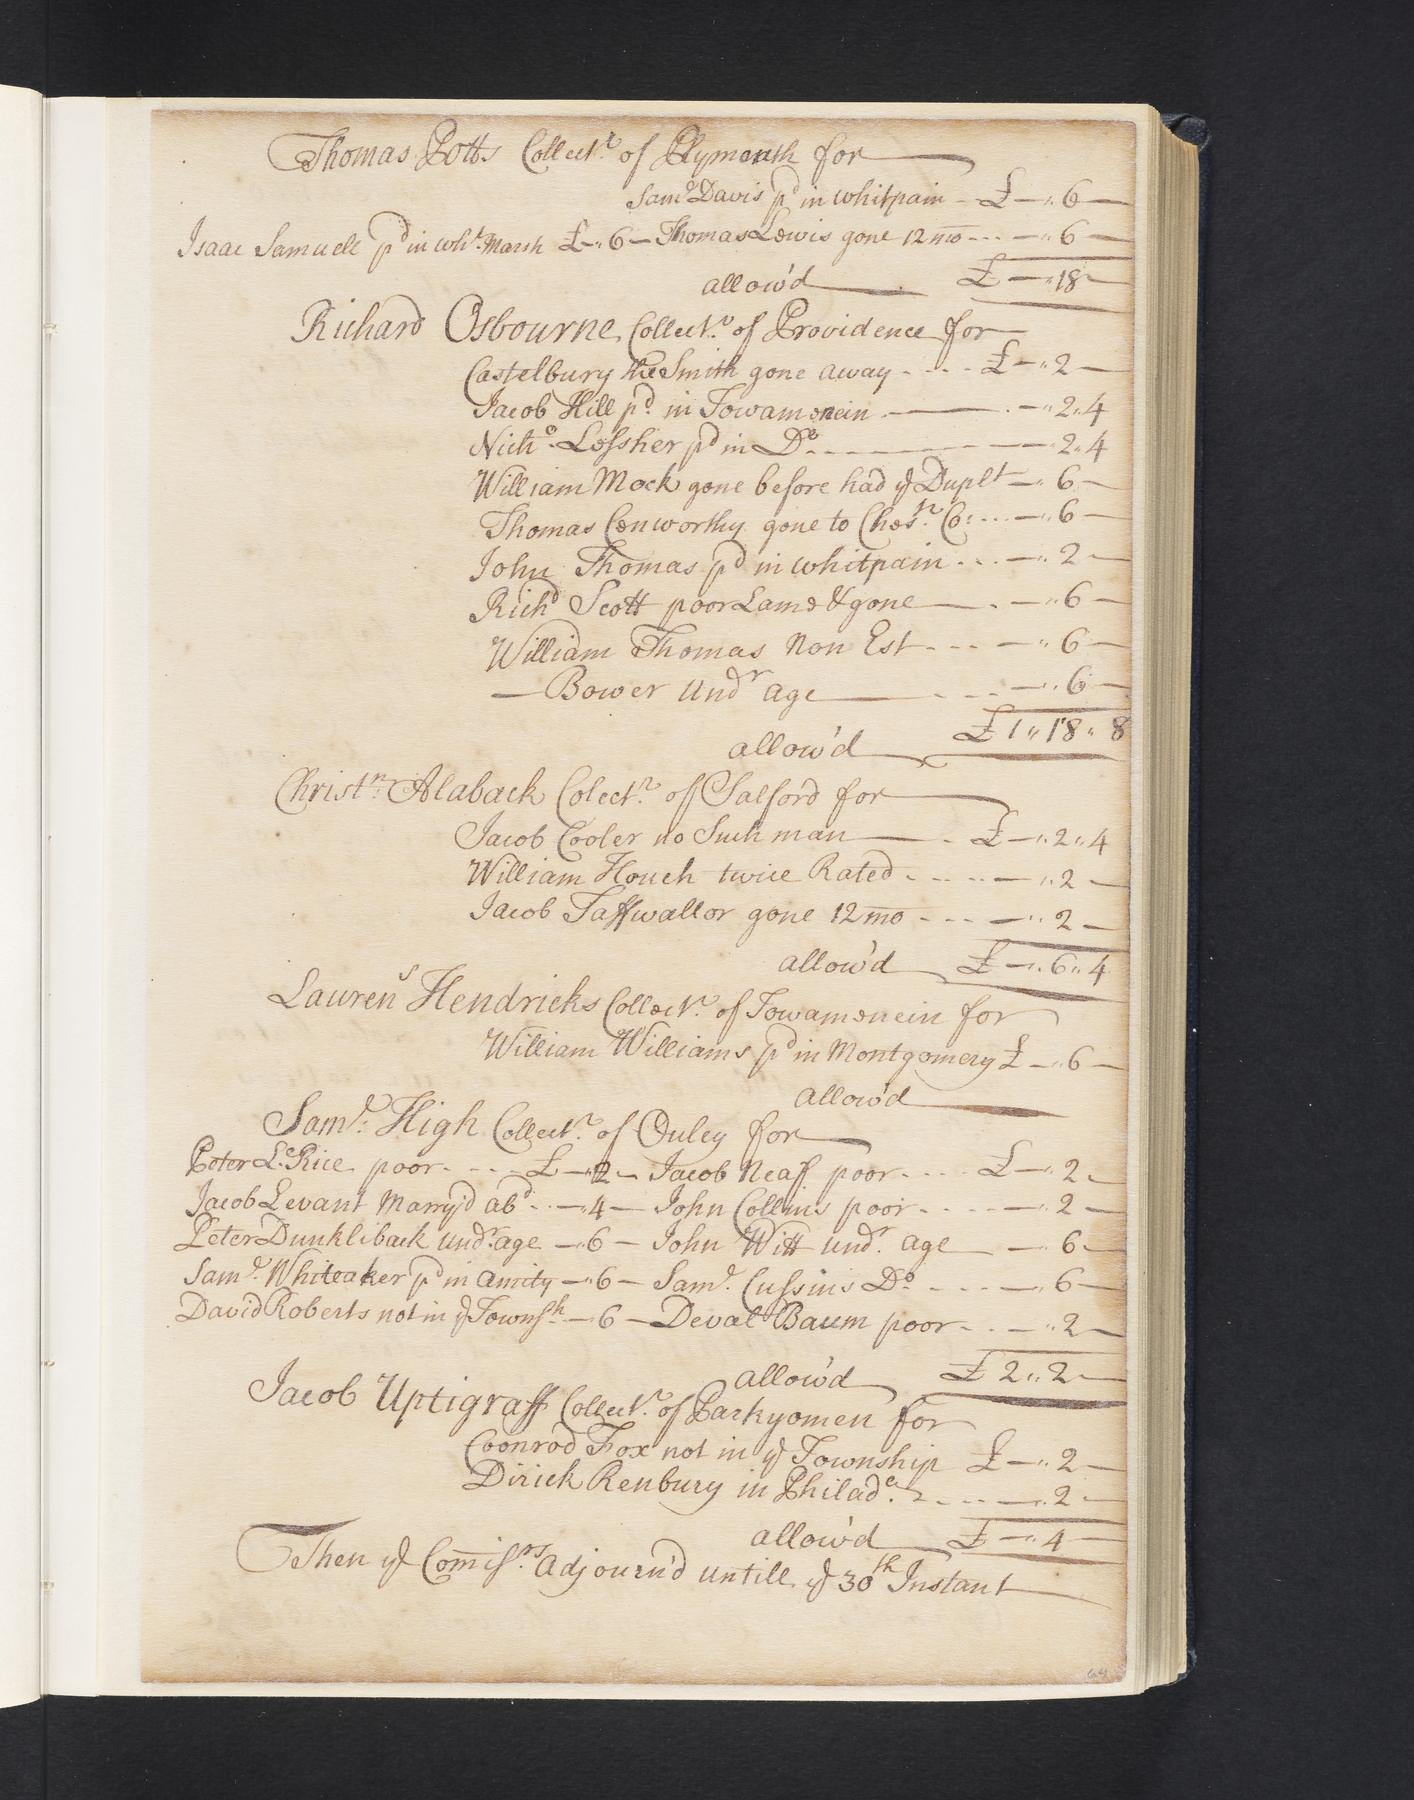 Thomas Potts Collectr. of Plymouth for
Saml. Davis pd in whitpain - £ — " 6 —
Isaac Samuell pd in wht. Marsh £ - " 6 — Thomas Lewis gone 12 mo --- — " 6 —
allow'd £ — " 18 —
Richard Osbourne Collectr. of Providence for
Castelbury the Smith gone away - - - - £ — " 2 —
Jacob Hill pd. in Towamencin — . — " 2 " 4
Nicho. Lessher pd in Do. - - - — 2 " 4
William Mock gone before had ye Duplt — " 6 —
Thomas Cenworthy gone to Chesr. Co: ... — " 6 —
John Thomas pd in whitpain . . . — " 2 —
Richd Scott poor Lame & gone — . — " 6 —
William Thomas Non Est - - - — " 6 —
— Bower Undr age — . . . — " 6 —
allow'd £ 1 " 18 " 8
Christn. Alaback Colectr. of Salford for
Jacob Cooler no Such man — . £ — " 2 " 4
William Houch twice Rated - - - - — " 2 —
Jacob Taffwallor gone 12 mo - - - — " 2 —
allow'd £ — " 6 " 4
Laurens Hendricks Collectr. of Towamencin for
William Williams pd in Montgomery £ — " 6 —
allow'd
Saml. High Collectr. of Ouley for
Peter Le Rice poor - - - - £ — " 2 — Jacob Neaff poor - - - - £ — " 2 —
Jacob Levant Marry'd abd. - - — " 4 — John Collins poor - - - - — " 2 —
Peter Dunkliback undr. age — " 6 — John Witt undr. age — 6 —
Saml. Whiteaker pd in amity — " 6 — Saml. Cussins Do - - - - — " 6 —
David Roberts not in ye Townsh. — " 6 — Deval Baum poor - . — " 2 —
allow'd £ 2 " 2 —
Jacob Uptigraff Collectr. of Parkyomen for
Coonrod Fox not in ye Township £ — " 2 —
Dirick Renbury in Philada. - - - — " 2 —
allow'd £ — " 4 —
Then ye Comissrs. adjourn'd untill ye 30th Instant
64